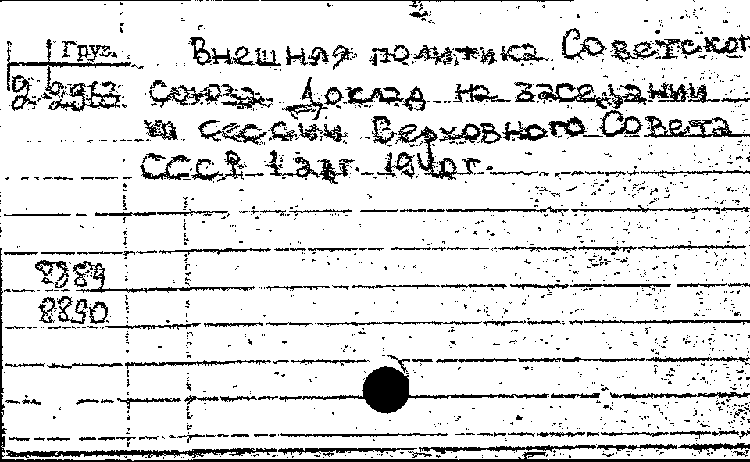 Груз. Внешняя политика Советског
2 2963 Союза Доклад на заседании
VII сессии Верховного Совета
СССР 1 авг. 1940 г.
8389
8890